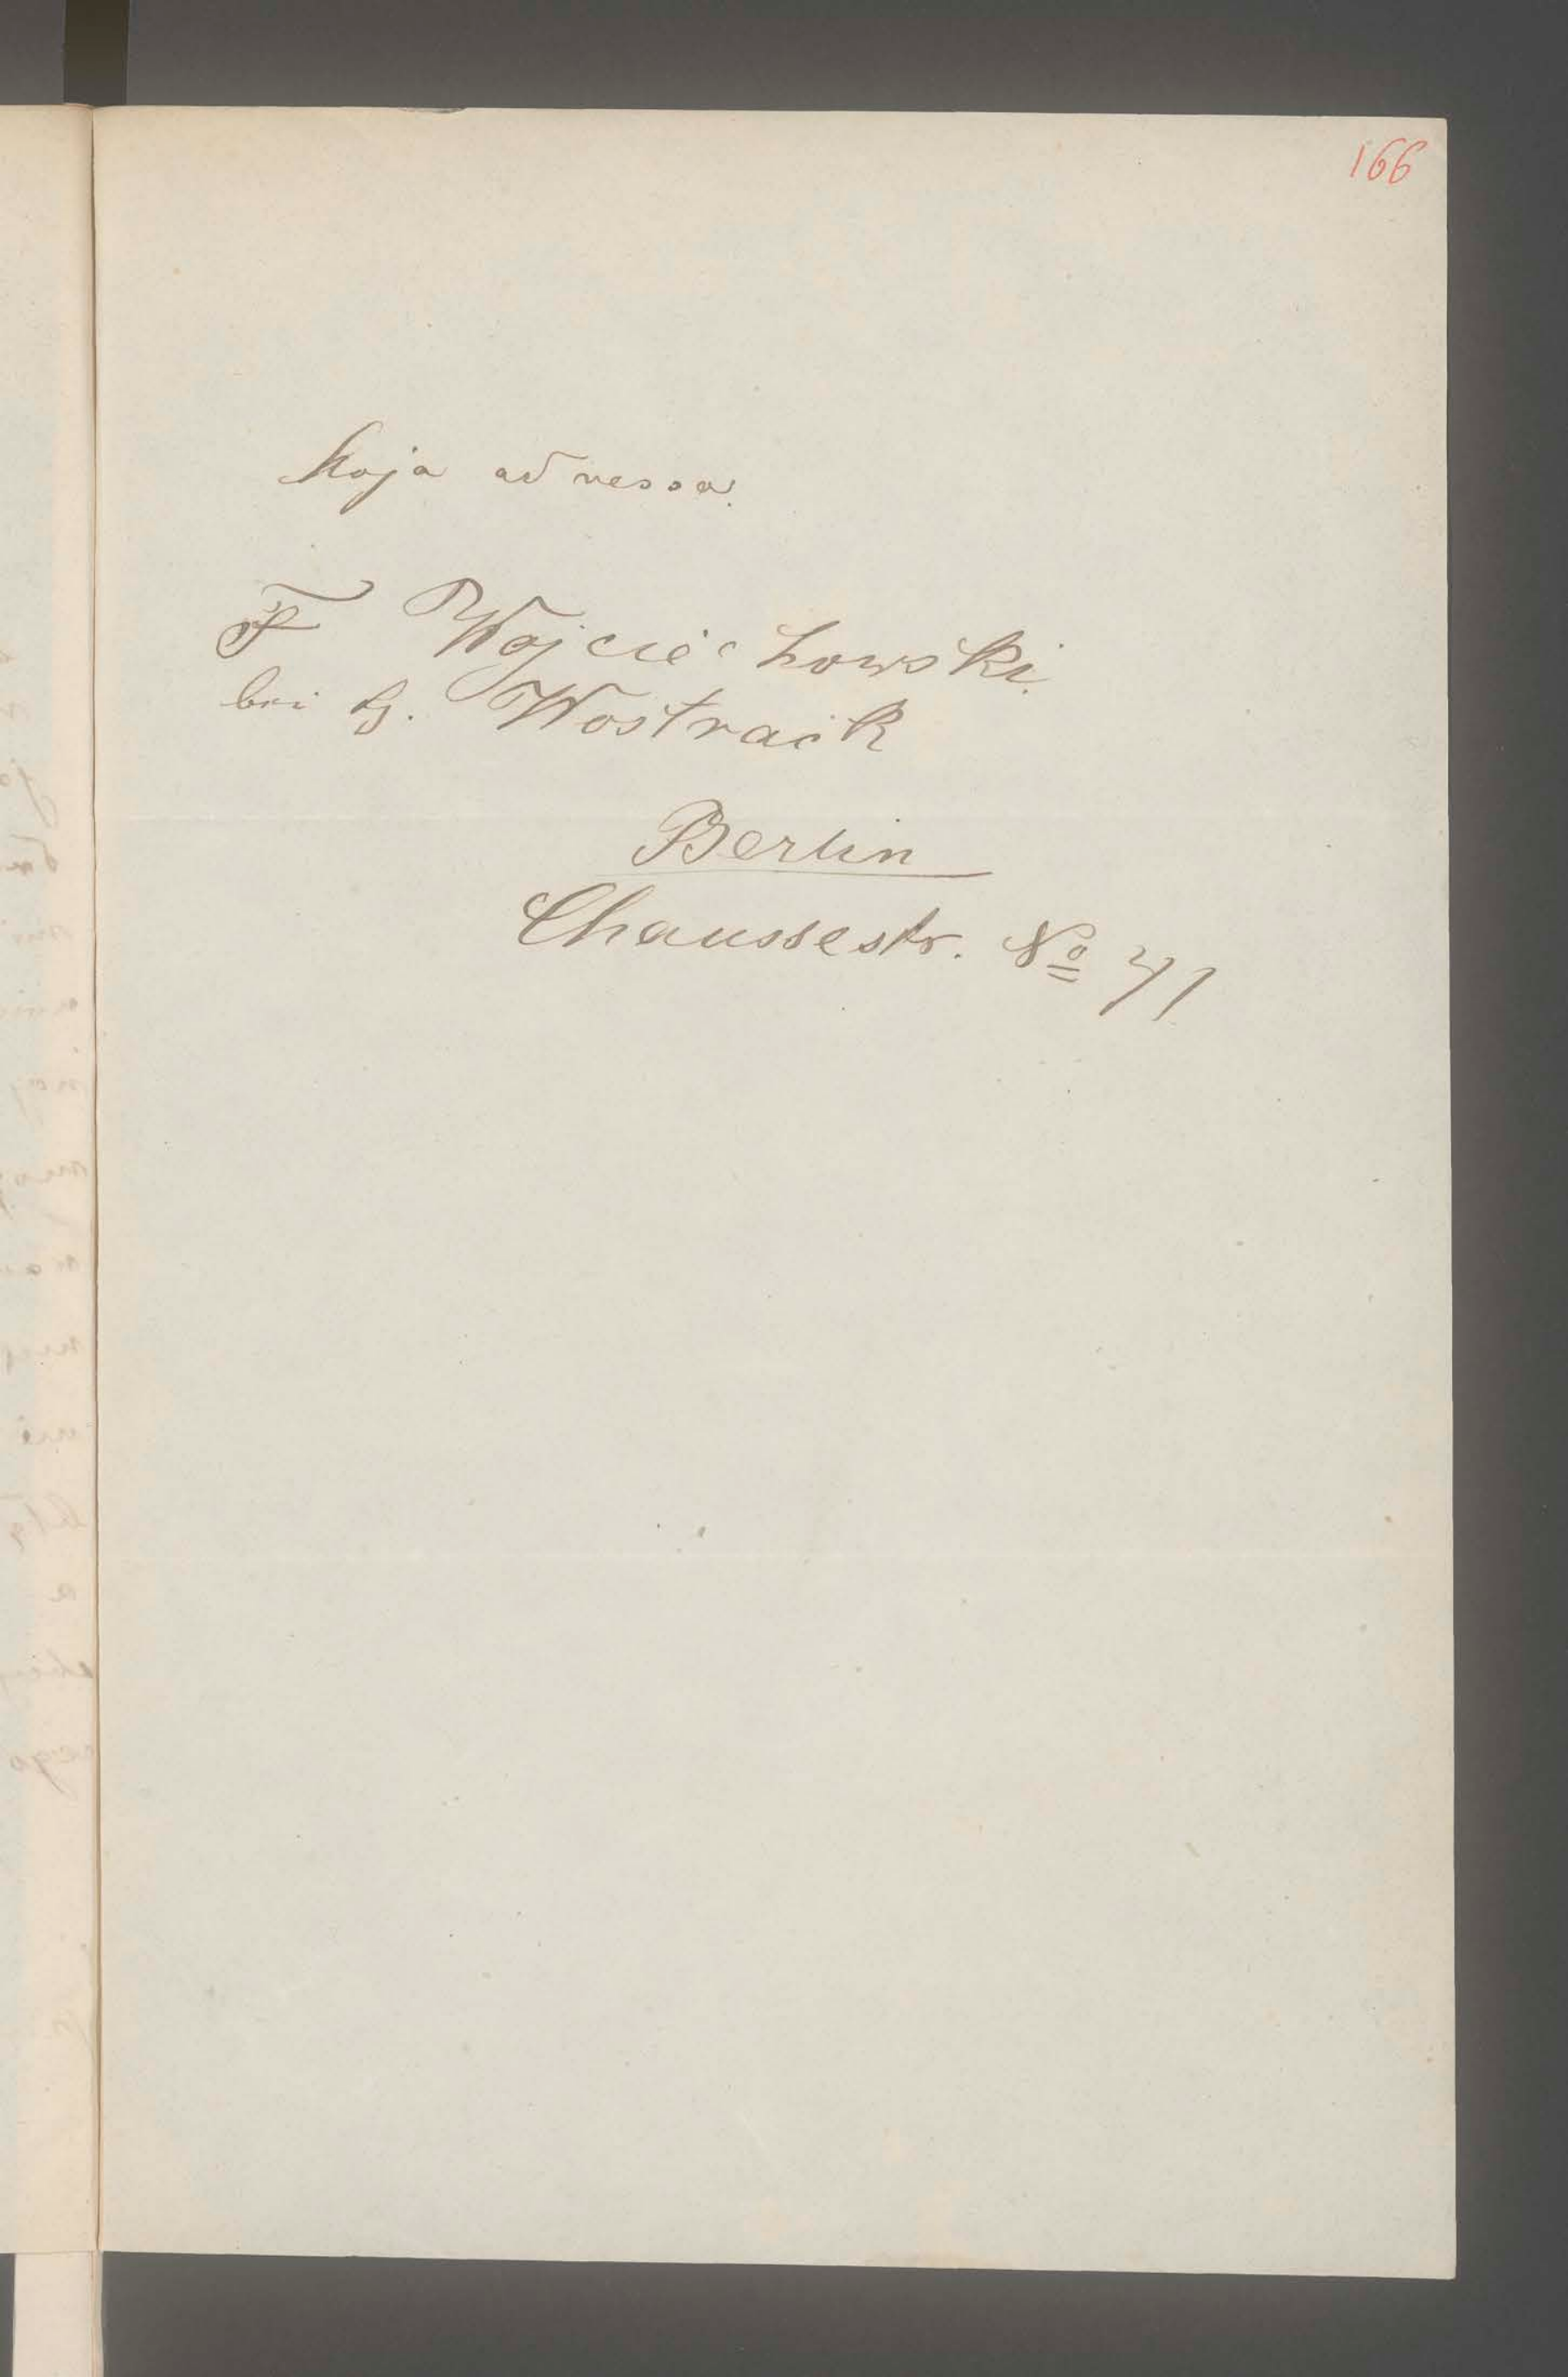 166
Moja adressa.
F Wojciechowski.
bei G. Wostrack
Berlin
Chaussestr. No 71